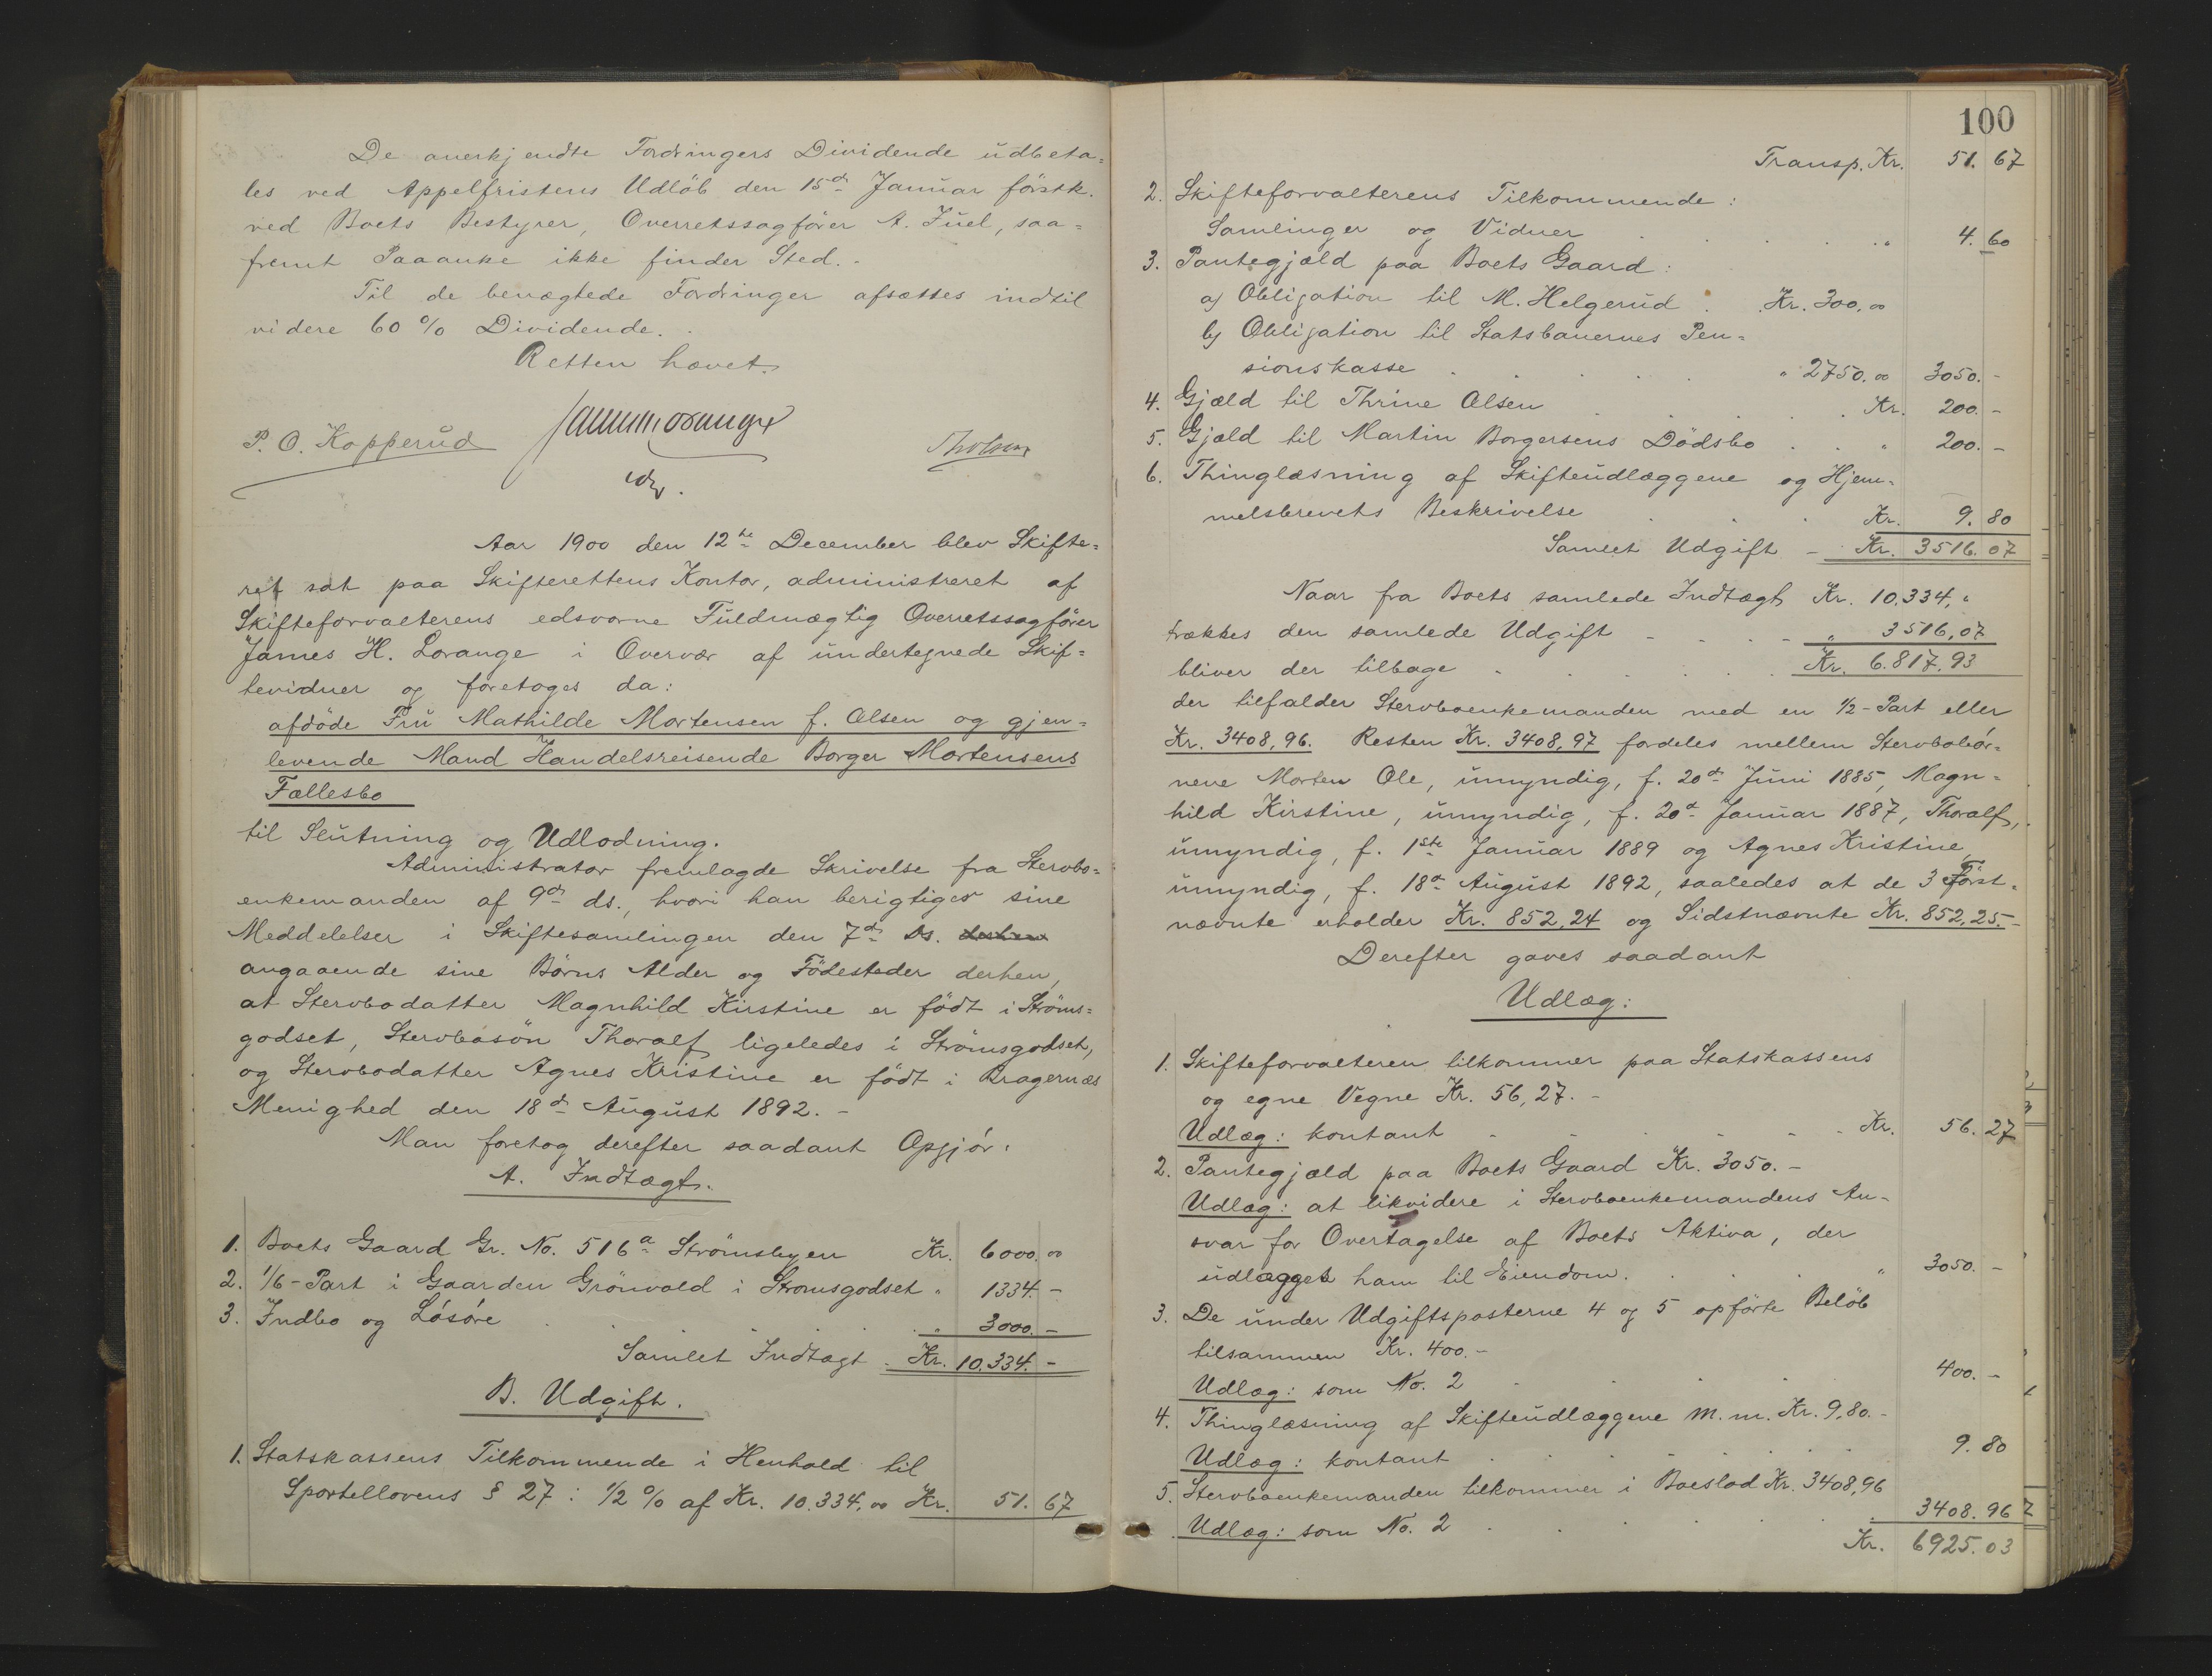 De anerkjendte Fordringers Dividende udbeta=
les ved Appelfristens Udløb den 15d Januar førstk.
ved Boets Bestyrer, Overretssagfører A. Juel, saa=
fremt Paaanke ikke finder Sted. -
Til de benægtede Fordringer afsættes indtil
videre 60 % Dividende. -
Retten hævet.
P. O. Kopperud
Aar 1900 den 12te December blev Skifte=
ret sat paa Skifterettens Kontor, administreret af
Skifteforvalterens edsvorne Fuldmægtig Overretssagfører
James H. Lorange i Overvær af undertegnede Skif=
tevidner og foretoges da:
afdøde Fru Mathilde Mortensen f. Olsen og gjen=
levende Mand Handelsreisende Borger Mortensens
Fællesbo
til Slutning og Udlodning.
Administrator fremlagde Skrivelse fra Stervbo=
enkemanden af 9d ds., hvori han berigtiger sine
Meddelelser i Skiftesamlingen den 7d ds.
angaaende sine Børns Alder og Fødesteder derhen,
at Stervbodatter Magnhild Kirstine er født i Strøms=
godset, Stervbosøn Thoralf ligeledes i Strømsgodset,
og Stervbodatter Agnes Kristine er født i Bragernæs
Menighed den 18d August 1892. -
Man foretog derefter saadant Opgjør:
A. Indtægt.
1. Boets Gaard Gr. No. 516a Strømsbyen Kr. 6000.00
2. 1/6-Part i Gaarden Grönvold i Strømsgodset " 1334.-
3. Indbo og Løsøre " 3000.-
Samlet Indtægt Kr. 10.334.-
B. Udgift.
1. Statskassens Tilkommende i Henhold til
Sportellovens § 27: 1/2 % af Kr. 10.334,00 Kr. 51. 67
100
Transp. Kr. 51. 67
2. Skifteforvalterens Tilkommende:
Samlinger og Vidner " 4. 60
3. Pantegjæld paa Boets Gaard:
a) Obligation til M. Helgerud Kr. 300.00
b) Obligation til Statsbanernes Pen=
sionskasse " 2750.00 3050.-
4. Gjæld til Thrine Olsen Kr. 200.-
5. Gjæld til Martin Borgersens Dødsbo " 200.-
6. Thinglæsning af Skifteudlæggene og Hjem=
melsbrevets Beskrivelse Kr. 9. 80
Samlet Udgift - Kr. 3516. 07
Naar fra Boets samlede Indtægt Kr. 10.334, "
trækkes den samlede Udgift " 3516,07
bliver der tilbage Kr. 6.817.93
der tilfalder Stervboenkemanden med en 1/2-Part eller
Kr. 3408,96. Resten Kr. 3408,97 fordeles mellem Stervbobør=
nene Morten Ole, umyndig, f. 20d Juni 1885, Magn=
hild Kirstine, umyndig, f. 20d Januar 1887, Thoralf,
umyndig, f. 1ste Januar 1889 og Agnes Kristine,
umyndig, f. 18d August 1892, saaledes at de 3 Først=
nævnte erholder Kr. 852,24 og Sidstnævnte Kr. 852,25.-
Derefter gaves saadant
Udlæg:
1. Skifteforvalteren tilkommer paa Statskassens
og egne Vegne Kr. 56,27. -
Udlæg: kontant Kr. 56. 27
2. Pantegjæld paa Boets Gaard Kr. 3050. -
Udlæg: at likvidere i Stervboenkemandens An=
svar for Overtagelse af Boets Aktiva, der
udlægges ham til Eiendom. " 3050. -
3. De under Udgiftsposterne 4 og 5 opførte Beløb
tilsammen Kr. 400.-
Udlæg: som No. 2 400. -
4. Thinglæsning af Skifteudlæggene m.m. Kr. 9,80.-
Udlæg: kontant 9. 80
5. Stervboenkemanden tilkommer i Boeslod Kr. 3408,96
Udlæg: som No. 2 3408. 96
Kr. 6925. 03